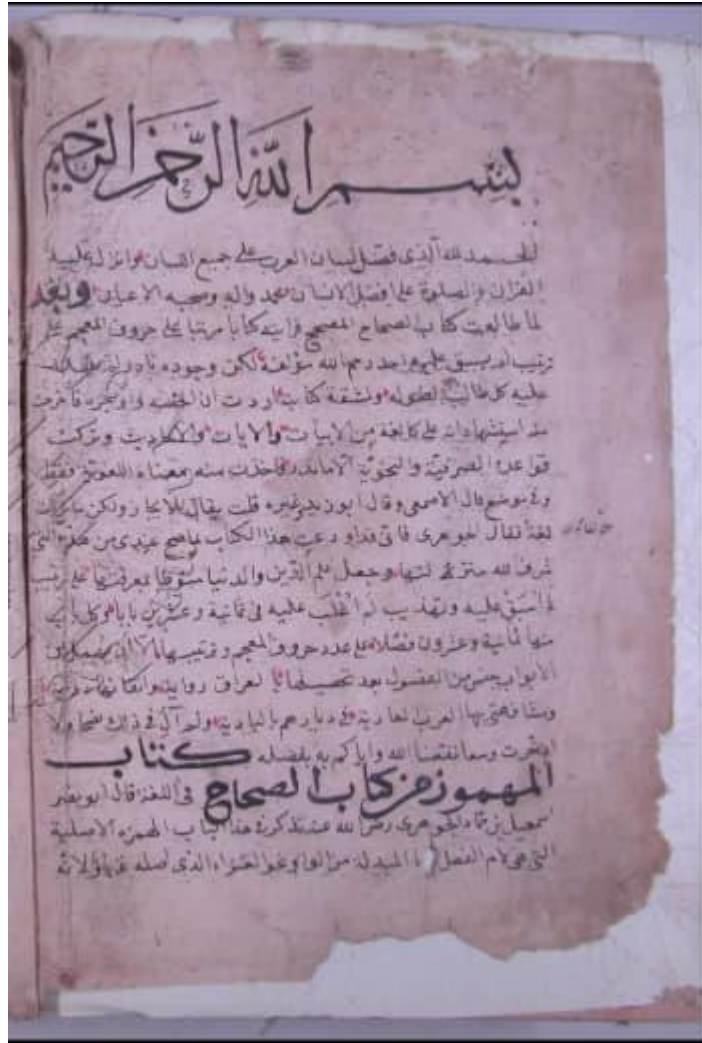 بسم الله الرحمن الرحيم
الحمد لله الذي فضل لسان العرب على جميع اللسان وانزل عليه
القران والصلوة على افضل الانسان محمد واله وصحبه الاعيان وبعد
لما طالعت كتاب الصحاح المصحح فرايته كتابا مرتبا على حروف المعجم على
ترتيب لم يسبق عليه احد رحم الله مؤلفه لكن وجوده نادر
على كل طالب لطوله ولمشقة كتابته اردت ان الخصه واوجزه فاخرجت
منه استشهاداته على كل لغة من الابيات والايات والاحاديث وتركت
قواعده الصرفية والنحوية الا ما ندر فاخذت منه معناه اللغوية فقط
وفي موضع قال الاصمعي وقال ابو زيد وغيره قلت يقال للايجاز ولكن ما تركت
لغة فقال الجوهري فاني قد اودعت هذا الكتاب ما صح عندي من هذه التي
شرف الله منزلتها وجعل علم الدين والدنيا منوطا بمعرفتها على ترتيب
لم اسبق عليه وتهذيب لم اغلب عليه في ثمانية وعشرين بابا وكل باب
منها ثمانية وعشرون فصلا على عدد حروف المعجم وترتيبها الا ان يهمل من
الابواب جنس من الفصول بعد تحصيلها بالعراق رواية واتقانها دراية
ومشافهتي بها العرب العاربة في ديارهم بالبادية ولم آل في ذلك نصحا ولا
ادخرت وسعا نفعنا الله واياكم به بفضله كتاب
المهموز من كتاب الصحاح في اللغة قال ابو نصر
اسمعيل بن حماد الجوهري رضي الله عنه نذكر في هذا الباب الهمزة الاصلية
التي هي لام الفعل فاما المبدلة من الواو نحو العزاء الذي اصله عزاو لانه